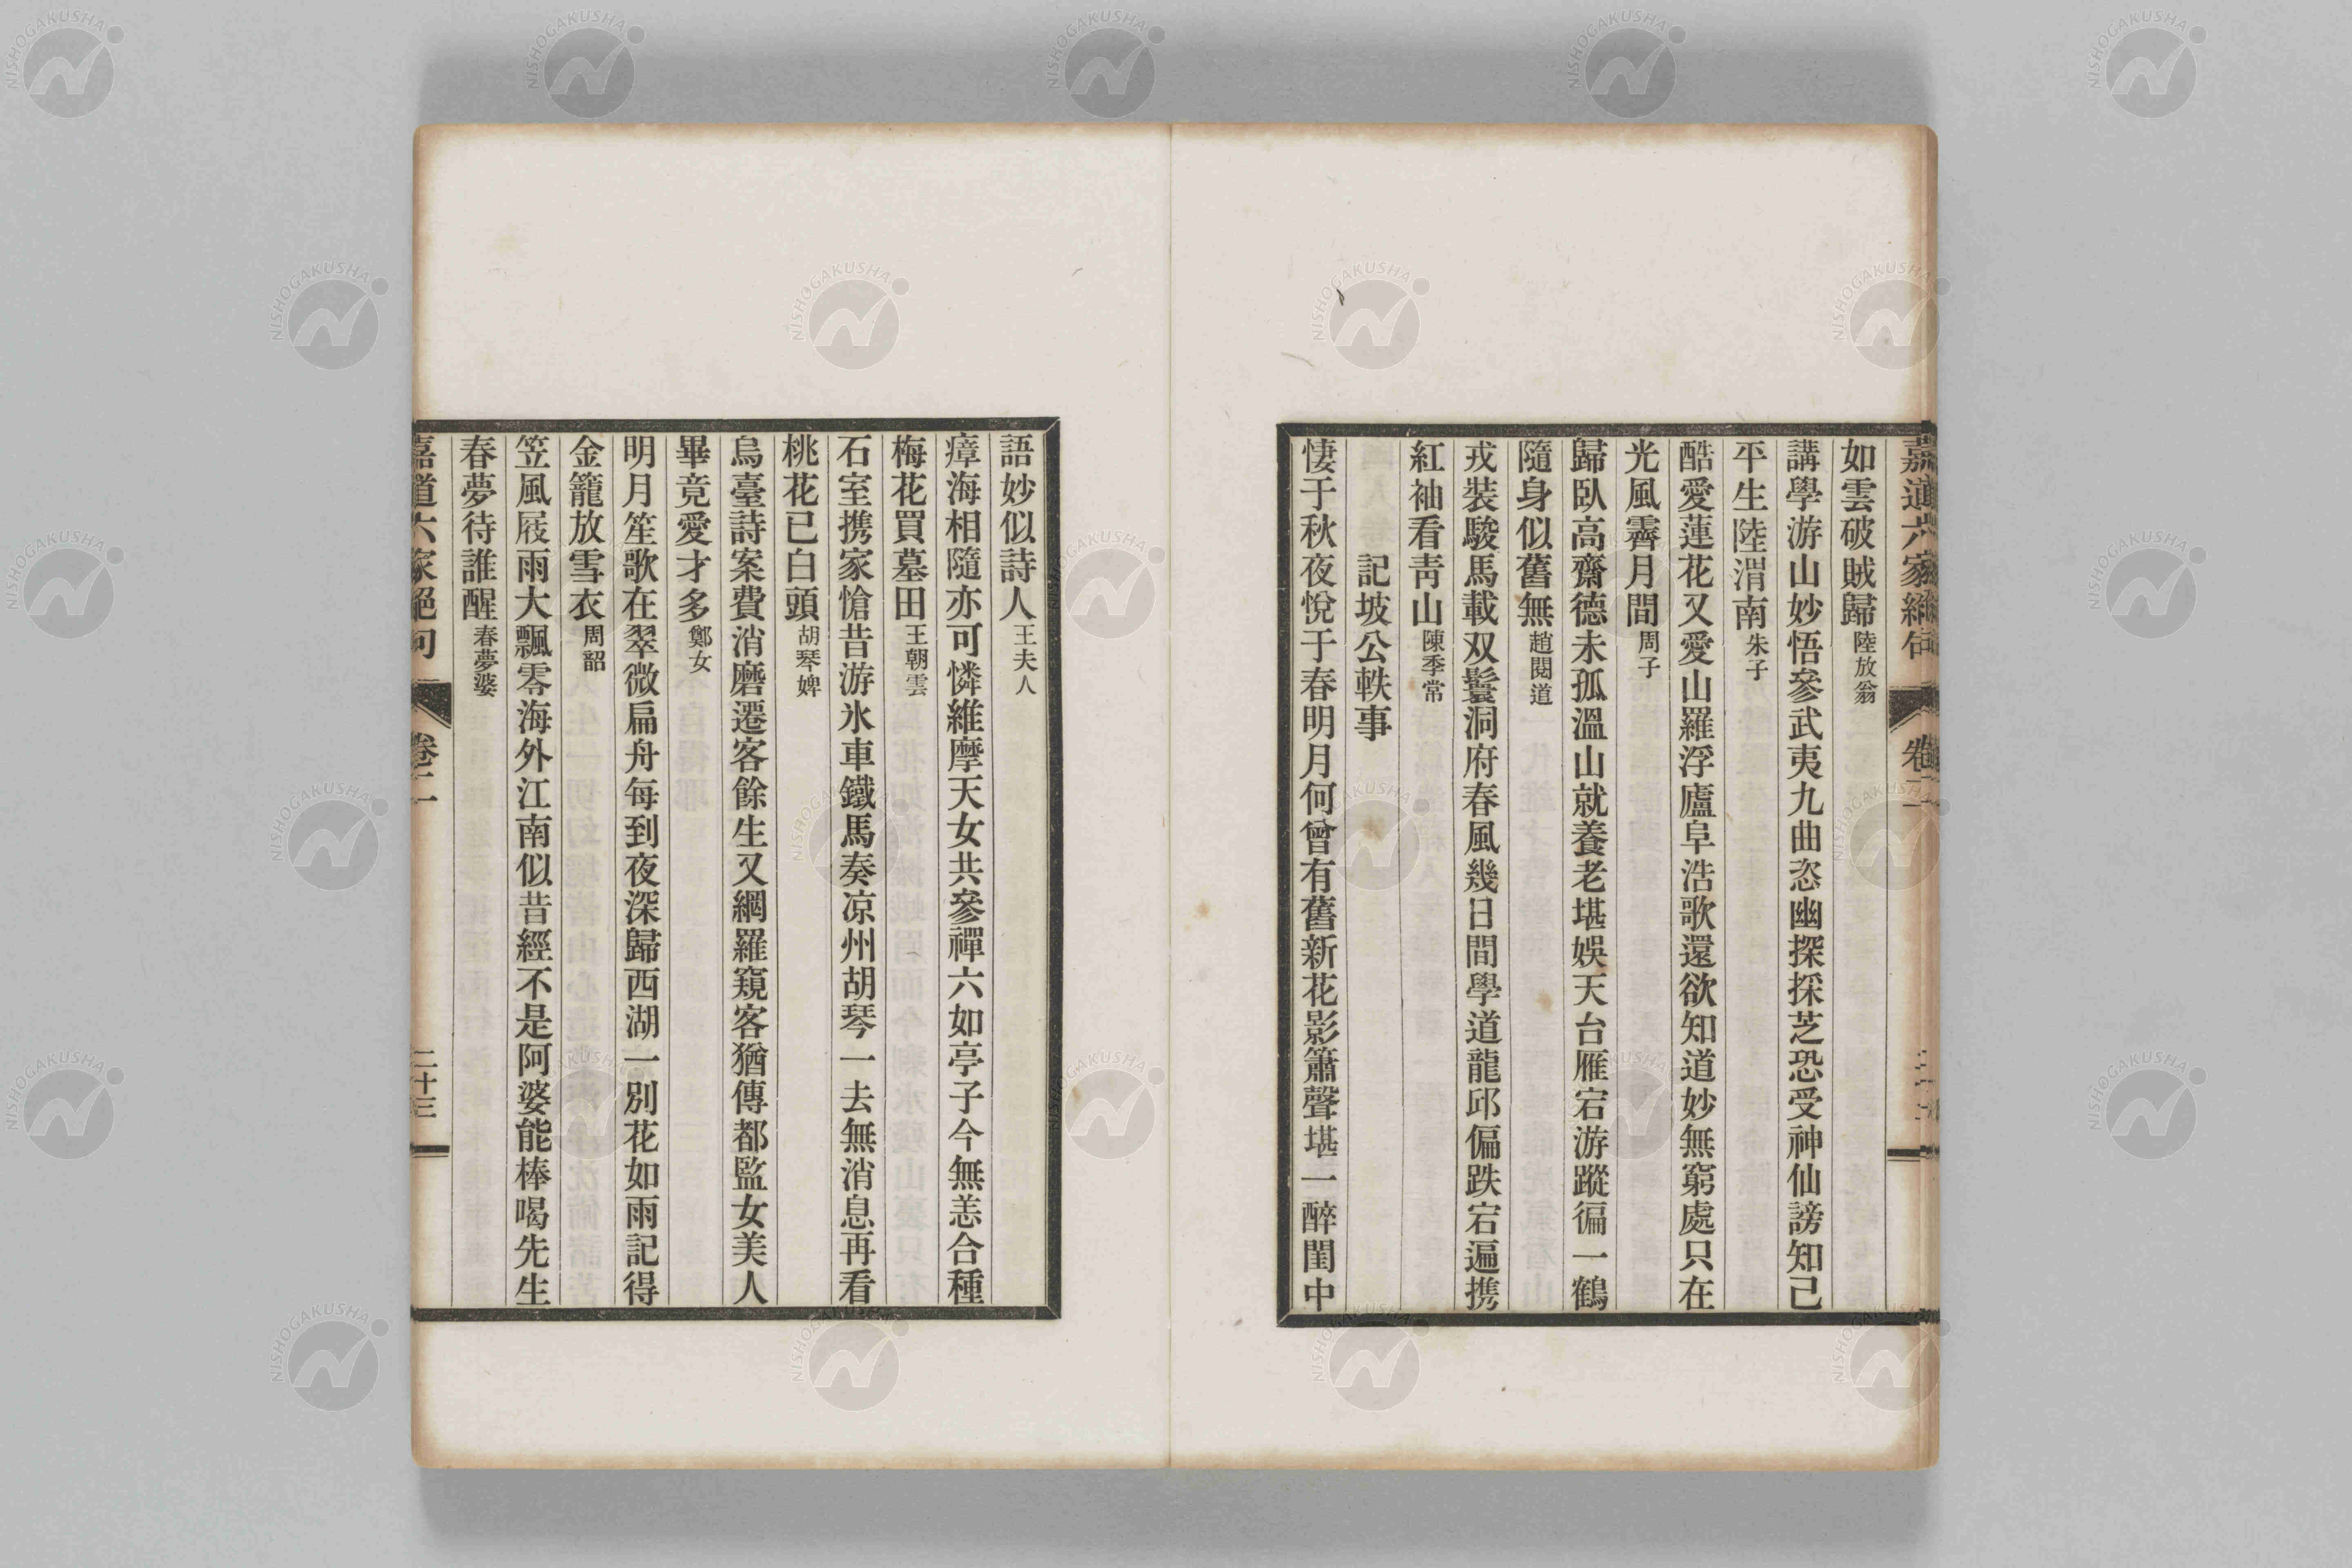 如雲破賊歸陸放翁
講學游山妙悟參武夷九曲恣幽探採芝恐受神仙謗知己
平生陸渭南朱子
酷愛蓮花又愛山羅浮廬阜浩歌還欲知道妙無窮處只在
光風霽月間周子
歸臥高齋德未孤溫山就養老堪娛天台雁宕游蹤徧一鶴
隨身似舊無趙閱道
戎裝駿馬載双鬟洞府春風幾日間學道龍邱偏跌宕遍携
紅袖看靑山陳季常
記坡公軼事
悽于秋夜悅于春明月何曾有舊新花影簫聲堪一醉閨中
語妙似詩人王夫人
瘴海相隨亦可憐維摩天女共參禪六如亭子今無恙合種
梅花買墓田王朝雲
石室携家愴昔游氷車鐵馬奏凉州胡琴一去無消息再看
桃花已白頭胡琴婢
烏臺詩案費消磨遷客餘生又網羅窺客猶傳都監女美人
畢竟愛才多鄭女
明月笙歌在翠微扁舟每到夜深歸西湖一別花如雨記得
金籠放雪衣周韶
笠風屐雨大飄零海外江南似昔經不是阿婆能棒喝先生
春夢待誰醒春夢婆
嘉道六家絕句
卷二
二十三
NISHOGAKUSHA